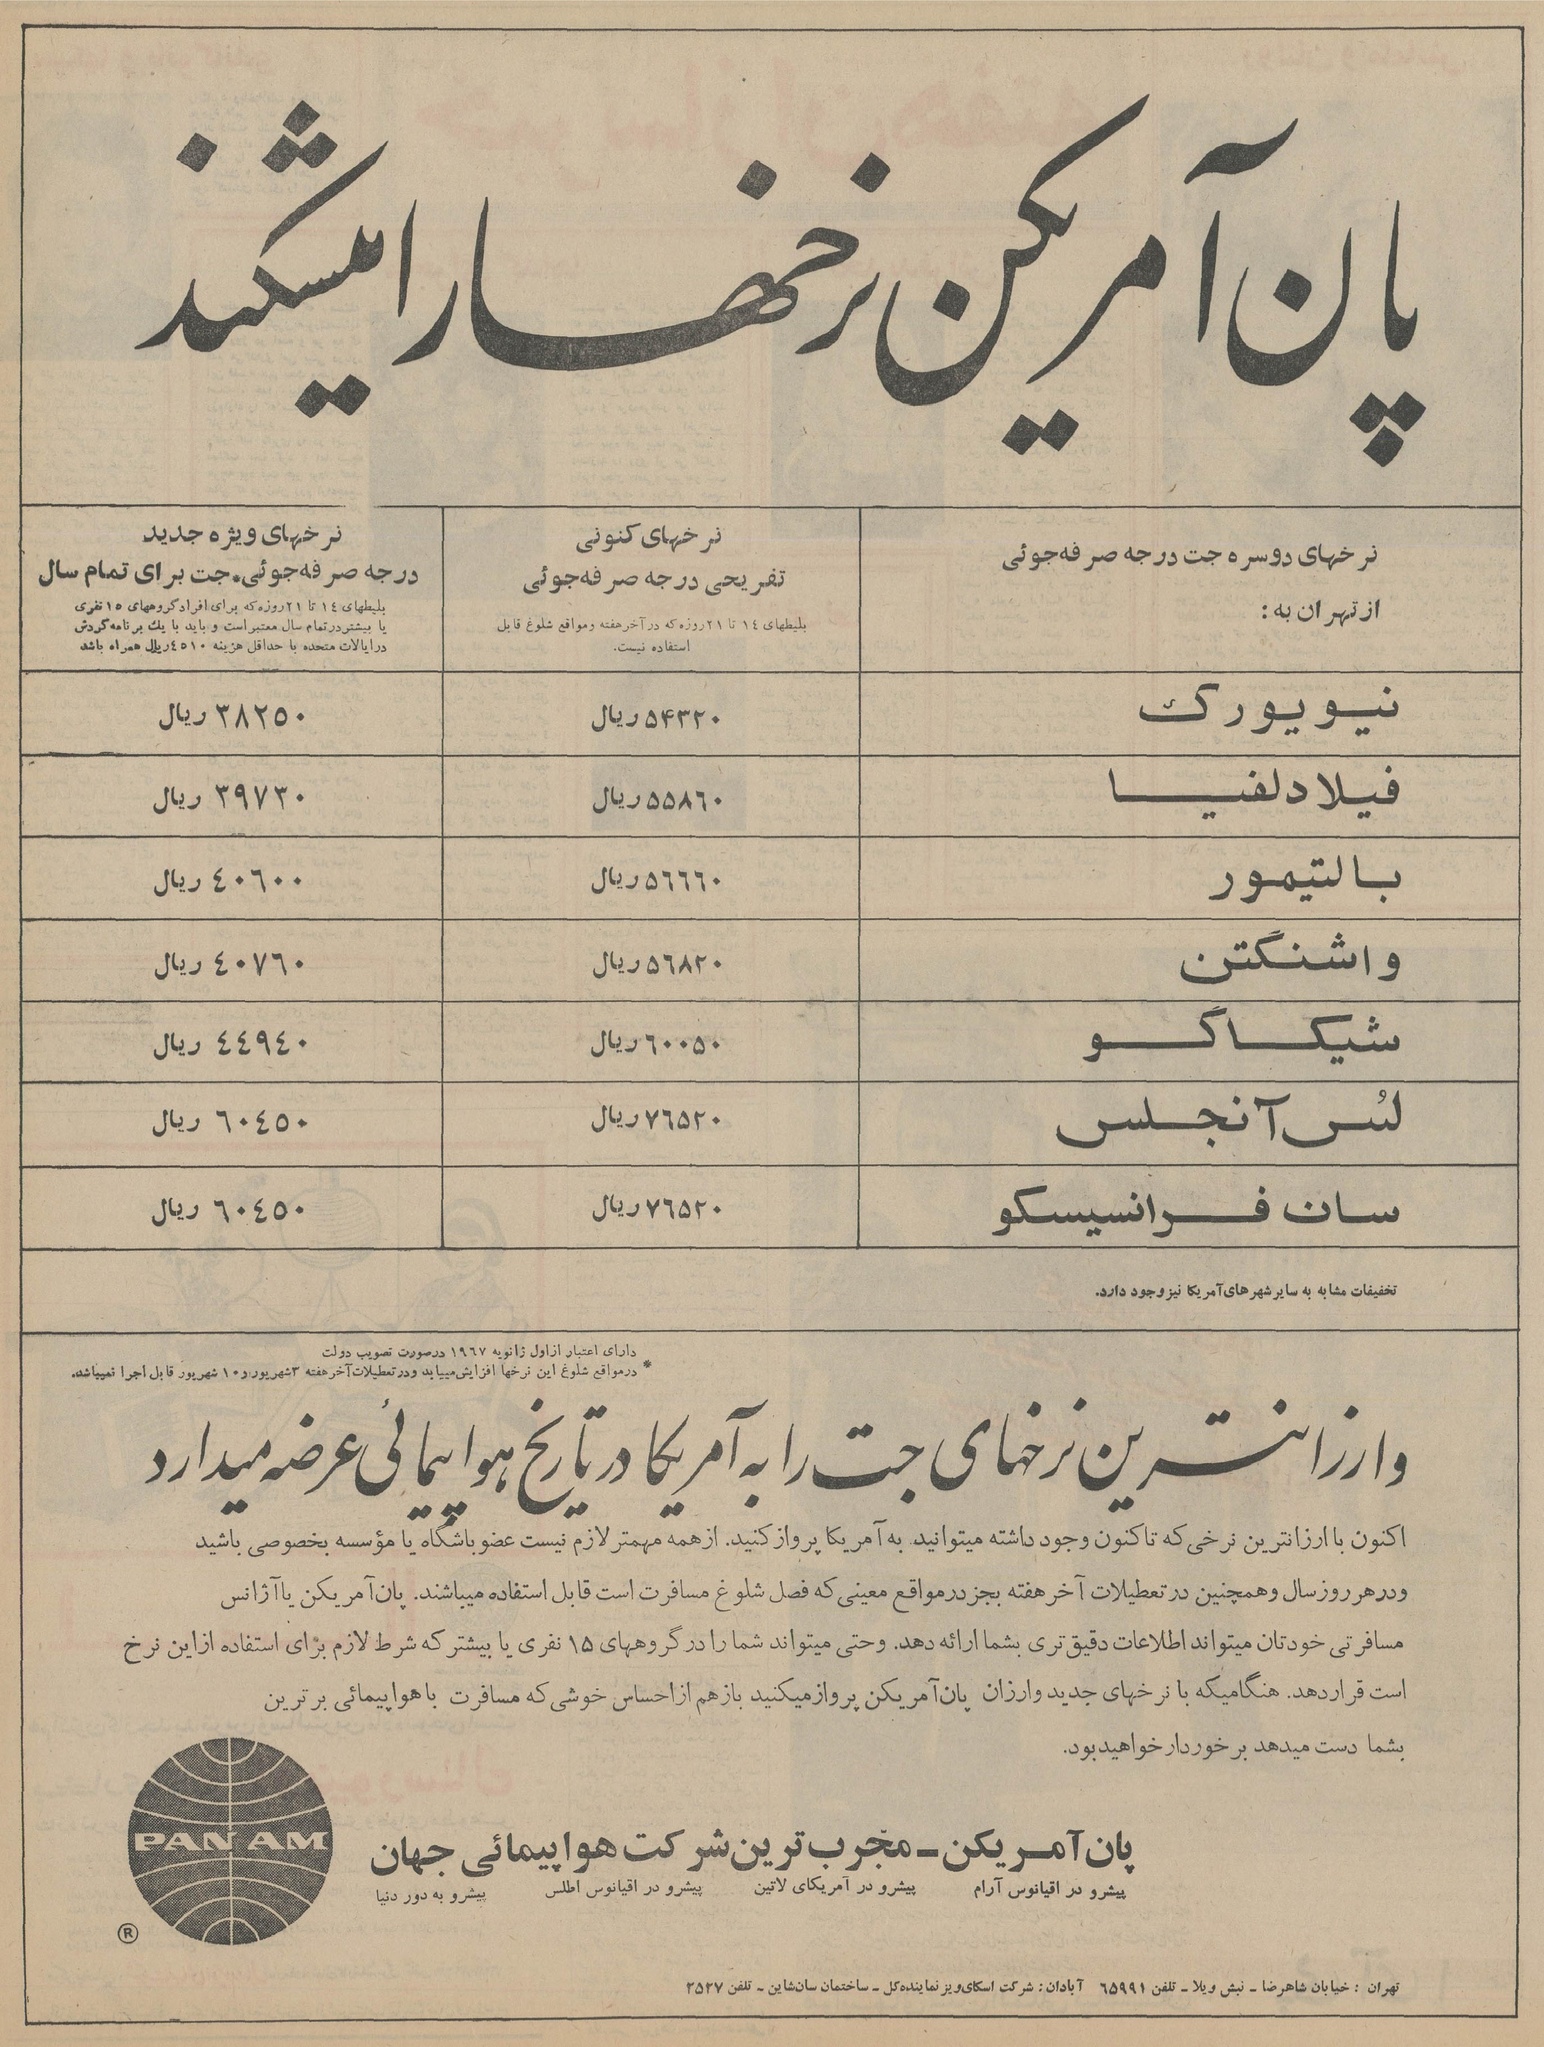 پان آمریکن نرخها را میشکند
نرخهای دوسره جت درجه صرفه‌جوئی
از تهران به:
نرخهای کنونی
تفریحی درجه صرفه‌جوئی
بلیطهای ١٤ تا ٢١ روزه که در آخر هفته و مواقع شلوغ قابل
استفاده نیست.
نرخهای ویژه جدید
درجه صرفه‌جوئی*جت برای تمام سال
بلیطهای ١٤ تا ٢١ روزه که برای افراد گروههای ١٥ نفری
یا بیشتر در تمام سال معتبر است و باید با یك برنامه گردش
در ایالات متحده با حداقل هزینه ٤٥١٠ ریال همراه باشد
نیویورک ۵۴۳۲۰ ریال ۳۸۲۵۰ ریال
فیلادلفیا ۵۵۸٦۰ ریال ۳۹۷۳۰ ریال
بالتیمور ۵٦٦٦۰ ریال ٤۰٦۰۰ ریال
واشنگتن ۵٦۸۲۰ ریال ٤۰۷٦۰ ریال
شیکاگو ٦۰۰۵۰ ریال ٤٤۹٤۰ ریال
لُس‌آنجلس ۷٦۵۲۰ ریال ٦۰٤۵۰ ریال
سان فرانسیسکو ۷٦۵۲۰ ریال ٦۰٤۵۰ ریال
تخفیفات مشابه به سایر شهرهای آمریکا نیز وجود دارد.
دارای اعتبار از اول ژانویه ١٩٦٧ در صورت تصویب دولت
* در مواقع شلوغ این نرخها افزایش مییابد و در تعطیلات آخر هفته ۳ شهریور و ۱۰ شهریور قابل اجرا نمیباشد.
و ارزانترین نرخهای جت را به آمریکا در تاریخ هواپیمائی عرضه میدارد
اکنون با ارزانترین نرخی که تاکنون وجود داشته میتوانید به آمریکا پرواز کنید. از همه مهمتر لازم نیست عضو باشگاه یا مؤسسه بخصوصی باشید
و در هر روز سال و همچنین در تعطیلات آخر هفته بجز در مواقع معینی که فصل شلوغ مسافرت است قابل استفاده میباشند. پان‌آمریکن یا آژانس
مسافرتی خودتان میتواند اطلاعات دقیق‌تری بشما ارائه دهد. و حتی میتواند شما را در گروههای ۱۵ نفری یا بیشتر که شرط لازم برای استفاده از این نرخ
است قرار دهد. هنگامیکه با نرخهای جدید و ارزان پان‌آمریکن پرواز میکنید باز هم از احساس خوشی که مسافرت با هواپیمائی برترین
بشما دست میدهد برخوردار خواهید بود.
PAN AM
®
پان‌آمریکن ـ مجّرب‌ترین شرکت هواپیمائی جهان
پیشرو در اقیانوس آرام پیشرو در آمریکای لاتین پیشرو در اقیانوس اطلس پیشرو به دور دنیا
تهران : خیابان شاهرضا ـ نبش ویلا ـ تلفن ٦٥٩٩١ آبادان : شرکت اسکای ویز نماینده کل ـ ساختمان سان‌شاین ـ تلفن ۲۵۲۷